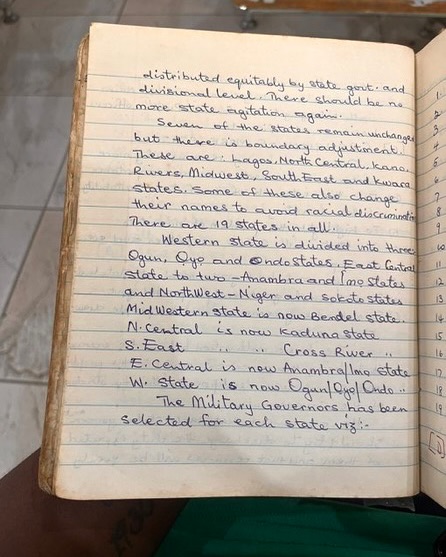 distributed equitably by state govt. and
divisional level. There should be no
more state agitation again.
Seven of the states remain unchanged
but there is boundary adjustment.
These are: Lagos, North Central, Kano,
Rivers, Midwest, South East and Kwara
states. Some of these also change
their names to avoid racial discrimination
There are 19 states in all.
Western state is divided into three
Ogun, Oyo and Ondo states, East Central
state to two - Anambra and Imo states
and North West - Niger and Sokoto states
Mid Western state is now Bendel state.
N. Central is now Kaduna state
S. East " " Cross River "
E. Central is now Anambra/Imo state
W. State is now Ogun/Oyo/Ondo "
The Military Governors has been
selected for each state viz:-
1
2
3
4
5
6
7
8
9
10
11
12
13
14
15
16
17
18
19